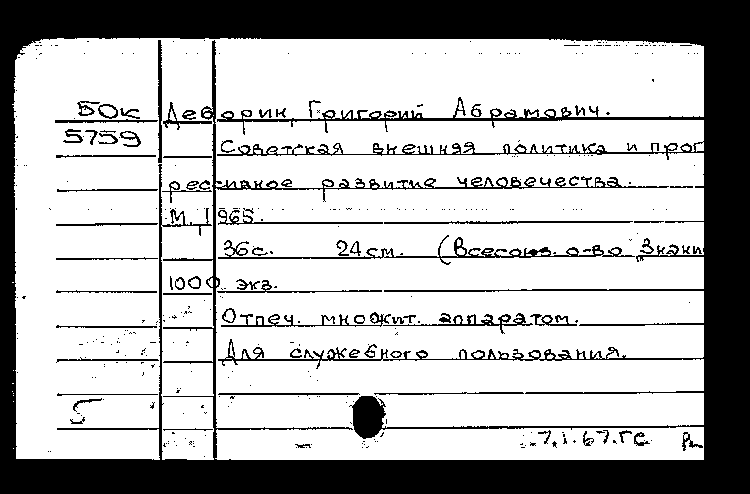 50к Деборин, Григорий Абрамович.
5759
Советская внешняя политика и прог
рессивное развитие человечества.
М., 1965.
36с. 24 см. (Всесоюз. о-во „Знани
1000 экз.
Отпеч. множит. аппаратом.
Для служебного пользования.
5
7.1.67.гс